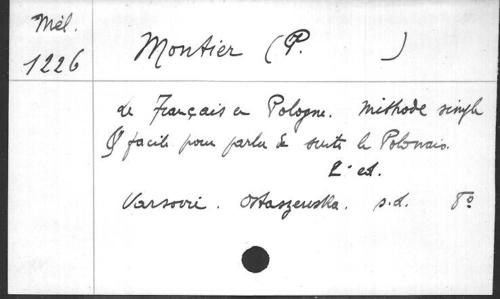 Mél.
1226
Montier (P. )
Le Français en Pologne. Méthode simple
& facile pour parler de suite le Polonais.
2e ed.
Varsovie. Ostaszewska. s.d. 8º